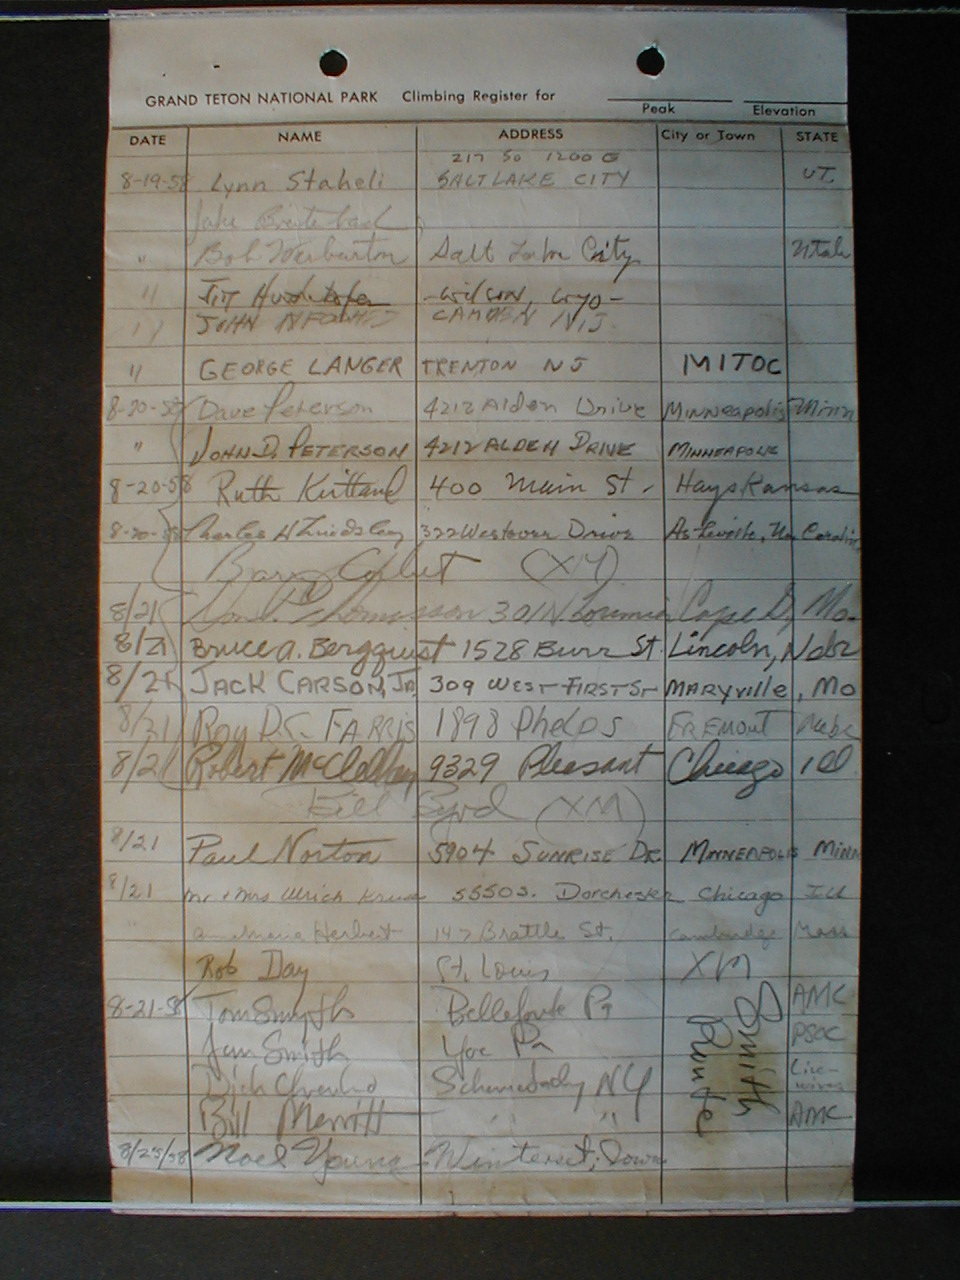 GRAND TETON NATIONAL PARK Climbing Register for
Peak Elevation
DATE NAME ADDRESS City or Town STATE
217 So 1200 E
8-19-58 Lynn Staheli SALT LAKE CITY UT.
Jake
" Bob Warburton Salt Lake City Utah
" Jim -Wilson, Wyo-
" JOHN CAMDEN NJ
" GEORGE LANGER TRENTON NJ MITOC
8-20-58 Dave Peterson 4212 Alden Drive Minneapolis Minn
" JOHN D. PETERSON 4212 ALDEN DRIVE MINNEAPOLIS
8-20-58 Ruth 400 Main St. Hays Kansas
8-20-58 Charles H Lindsley 322 Westover Drive
Barry Corbet (XM)
8/21 301 N Cape G, Mo.
8/21 Bruce A. Bergquist 1528 Burr St. Lincoln, Nebr
8/21 JACK CARSON, JR. 309 WEST FIRST ST MARYVILLE, MO
8/21 Roy D.C. FARRIS 1898 Phelps FREMONT Nebr
8/21 Robert 9329 Pleasant Chicago Ill
Bill Byrd (XM)
8/21 Paul Norton 5904 SUNRISE DR MINNEAPOLIS MINN
8/21 Mr & Mrs Ulrich Kruse 5550 S. Dorchester Chicago Ill
Herbert 147 Brattle St. Cambridge Mass
Rob Day St. Louis XM
8-21-58 Tom Smyth Bellefonte Pa AMC
Jim Smith Pa PSOC
Smith Route
Dick Schenectady NY
Bill Merritt " " AMC
8/25/58 Noel Young Winterset, Iowa